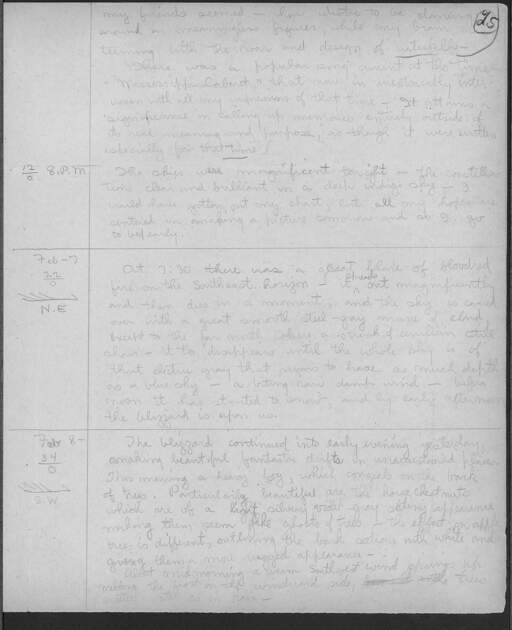 25
my friends seemed — how idiotic to be dancing
around in meaningless figures, while my brain
teeming with the hour and design of
There was a popular song current at the time
"Mississippi Cabaret" that now is inevitably inter
woven with all my impressions of that time — It attains a
significance in calling up memories entirely outside of
its real meaning and purpose, as though it were written
especially for that time!
12/0 8 P.M The skies were magnificent tonight — The constella-
tions clear and brilliant in a deep indigo sky — I
would have gotten out my chart, but all my hopes are
centered in making a picture tomorrow and so I go
to bed early.
Feb-7
22/0
N.E
At 7:30 there was a great flare of blood red
fire on the Southeast horizon — it spreads out magnificently
and then dies in a moment, and the sky is covered
over with a great smooth steel-gray mass of cloud,
except to the far north where a streak of still
shows — it too disappears until the whole sky is of
that gray that seems to have as much depth
as a blue sky — a biting raw damp wind — before
noon it has started to snow, and by early afternoon
the blizzard is upon us.
Feb 8-
34/0
S.W
The blizzard continued into early evening yesterday,
making beautiful fantastic drifts in places
This morning a heavy fog, which congeals on the bark
of trees. Particularly beautiful are the horse chestnuts
which are of a light silvery gray appearance
making them seem like ghosts of trees — the effect on apple
trees is different, outlining the bark texture with white and
giving them a more rugged appearance —
About midmorning a warm Southwest wind springs up
melting the on the windward side, trees